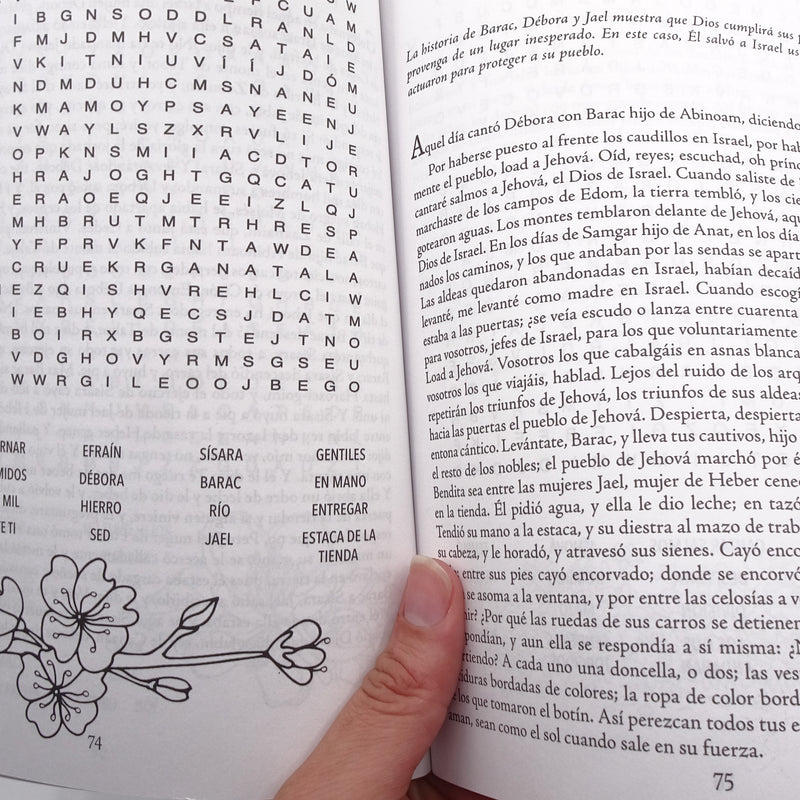 F C U A M
I B G N S O D D L R A N L D
F M J D M H V C S A T A I E
V K I T N I U V Í Í J D Ó M
N D M D U H C M S N A N E U
K M A M O Y P S A Y E E N J
V W A Y L S Z X R V L I J E
O P K N S M I I A C D T O R
H R A J O G H T G Q C A T U
E R A O E Q J E E I Z L Q J
M H B R U T M T R H R E S P
Y F P R V K F N T A W D E A
C R U E K R G A N A T A L A
E Z Q I S H V R E H L C I W
I E B H Y Q E C S J D A T M
B O I R X B G S T E J T N O
V D G H O V Y R M S G S E U
W W R G I L E O O J B E G O
RNAR EFRAÍN SÍSARA GENTILES
MIDOS DÉBORA BARAC EN MANO
MIL HIERRO RÍO ENTREGAR
E TI SED JAEL ESTACA DE LA
TIENDA
74
La historia de Barac, Débora y Jael muestra que Dios cumplirá sus
provenga de un lugar inesperado. En este caso, Él salvó a Israel us
actuaron para proteger a su pueblo.
Aquel día cantó Débora con Barac hijo de Abinoam, diciendo
Por haberse puesto al frente los caudillos en Israel, por hab
mente el pueblo, load a Jehová. Oíd, reyes; escuchad, oh prínc
cantaré salmos a Jehová, el Dios de Israel. Cuando saliste de
marchaste de los campos de Edom, la tierra tembló, y los cie
gotearon aguas. Los montes temblaron delante de Jehová, aqu
Dios de Israel. En los días de Samgar hijo de Anat, en los día
nados los caminos, y los que andaban por las sendas se apart
Las aldeas quedaron abandonadas en Israel, habían decaíd
levanté, me levanté como madre en Israel. Cuando escogí
estaba a las puertas; ¿se veía escudo o lanza entre cuarenta
para vosotros, jefes de Israel, para los que voluntariamente
Load a Jehová. Vosotros los que cabalgáis en asnas blanca
vosotros los que viajáis, hablad. Lejos del ruido de los arq
repetirán los triunfos de Jehová, los triunfos de sus aldeas
hacia las puertas el pueblo de Jehová. Despierta, despierta
entona cántico. Levántate, Barac, y lleva tus cautivos, hijo
el resto de los nobles; el pueblo de Jehová marchó por é
Bendita sea entre las mujeres Jael, mujer de Heber cene
en la tienda. Él pidió agua, y ella le dio leche; en tazó
Tendió su mano a la estaca, y su diestra al mazo de trab
su cabeza, y le horadó, y atravesó sus sienes. Cayó enco
entre sus pies cayó encorvado; donde se encorvó
se asoma a la ventana, y por entre las celosías a v
nir? ¿Por qué las ruedas de sus carros se detienen
pondían, y aun ella se respondía a sí misma: ¿N
rtiendo? A cada uno una doncella, o dos; las ves
iduras bordadas de colores; la ropa de color bord
los que tomaron el botín. Así perezcan todos tus e
aman, sean como el sol cuando sale en su fuerza.
75